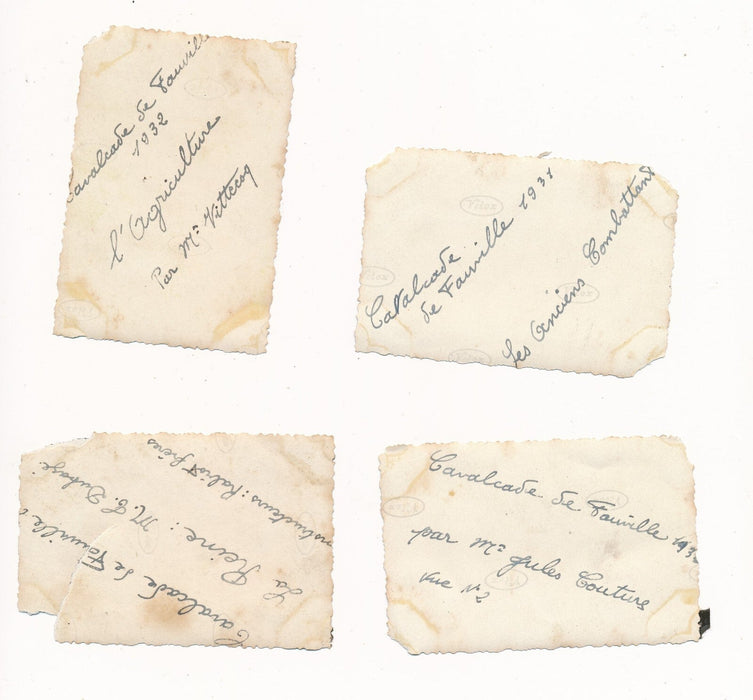 Cavalcade de Fauville
1932
l'Agriculture
Par Mr Vittecoq
Cavalcade
de Fauville 1931
les Anciens Combattants
Velox
Velox
Velox
Velox
Cavalcade de Fauville
La Reine: M. E.
Constructeurs: Raliot frères
Cavalcade de Fauville 193
par Mr Jules Couture
Vue N°2